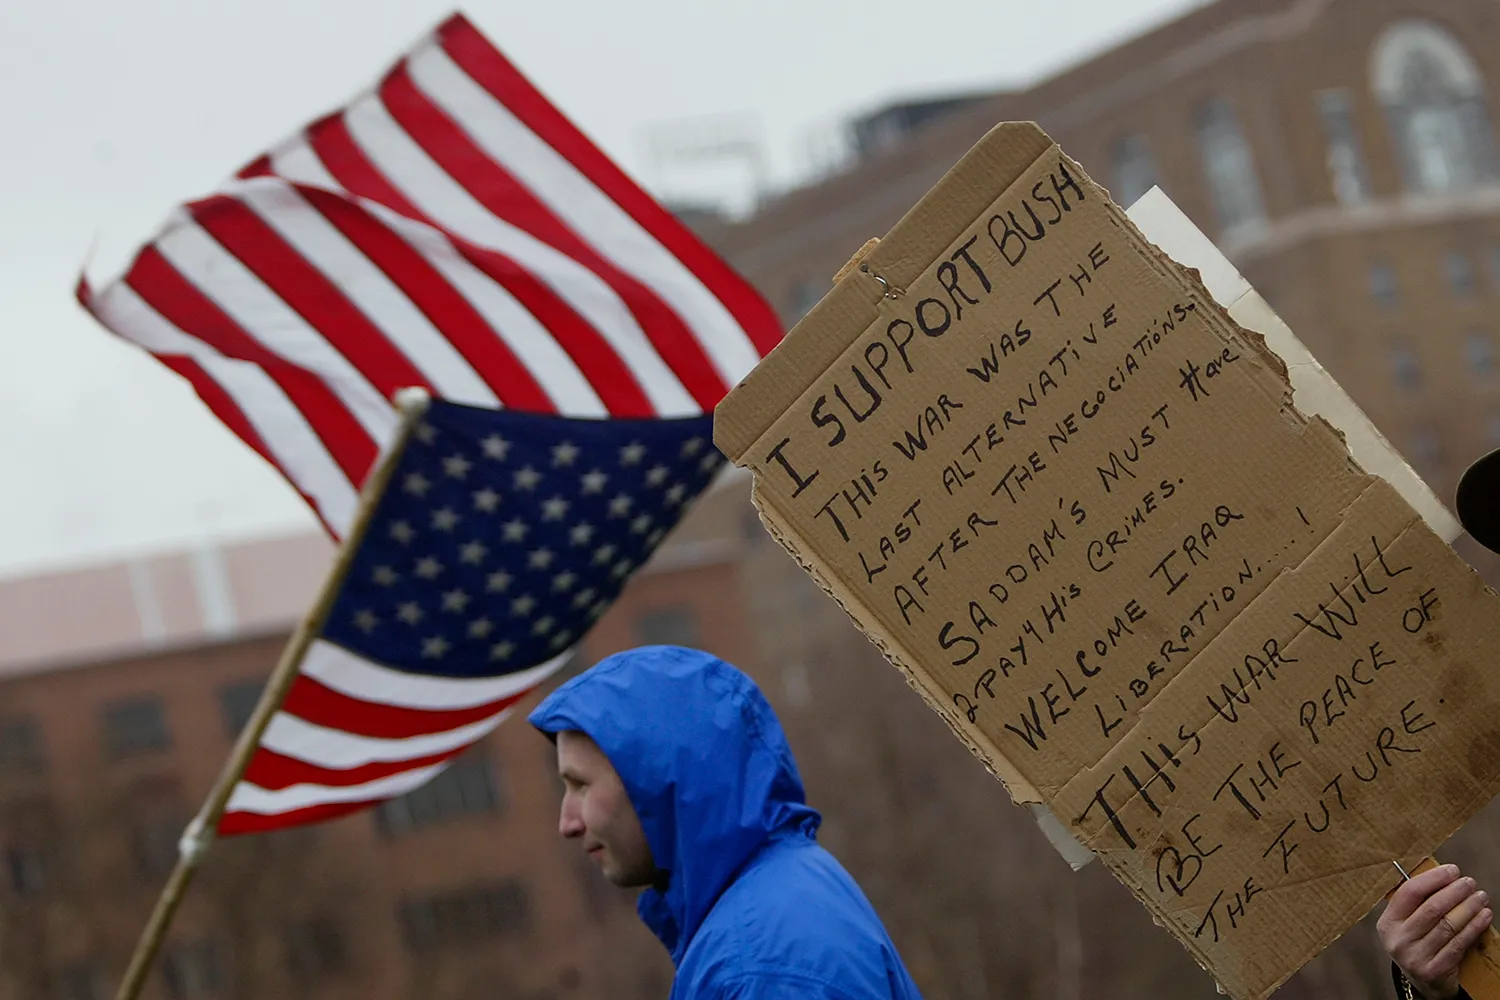 I SUPPORT BUSH
THiS WAR WAS THE
LAST ALTERNATiVE
AFTER THE NEGOCiATiONS.
SADDAM'S MUST Have
2 PAY 4 His CRiMES.
WELCOME IRAQ
LiBERATiON.....!
THiS WAR WiLL
BE THE PEACE OF
THE FUTURE.